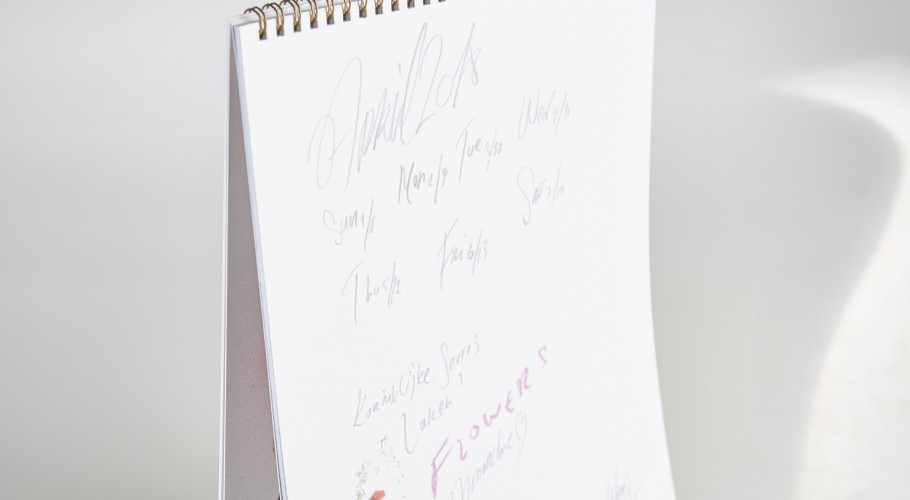 April 2018
Sun 1/8 Mon 2/9 Tue 3/10 Wed 4/11
Thu 5/12 Fri 6/13 Sat 7/14
Koninklijke Serres
Laken!
FLOWERS